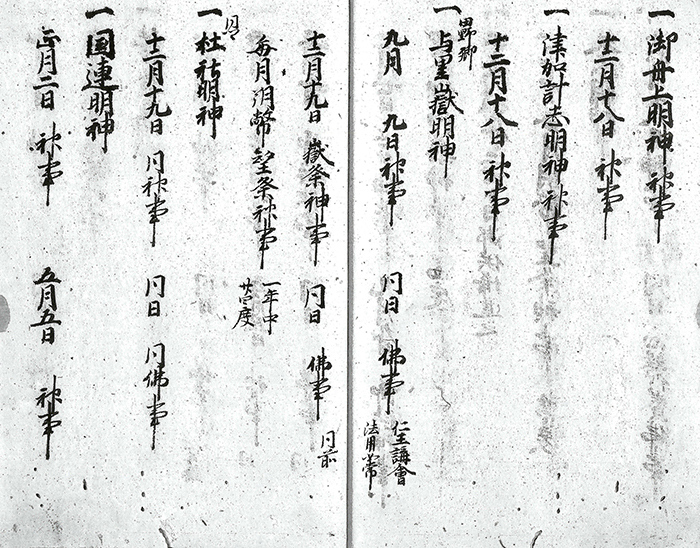 一 御舟上明神 神事
十二月十八日 神事
一 津加計志明神 神事
十二月十八日 神事
田野郷
一 与里嶽明神
九月 九日神事 同日 佛事 仁王講會
法用如常
十二月十九日 嶽祭神事 同日 佛事 同前
毎月朔幣 望祭神事 一年中
廿四度
同
一 杜祐明神
十二月十九日 同神事 同日 同佛事
一 国連明神
正月二日 神事 五月五日 神事